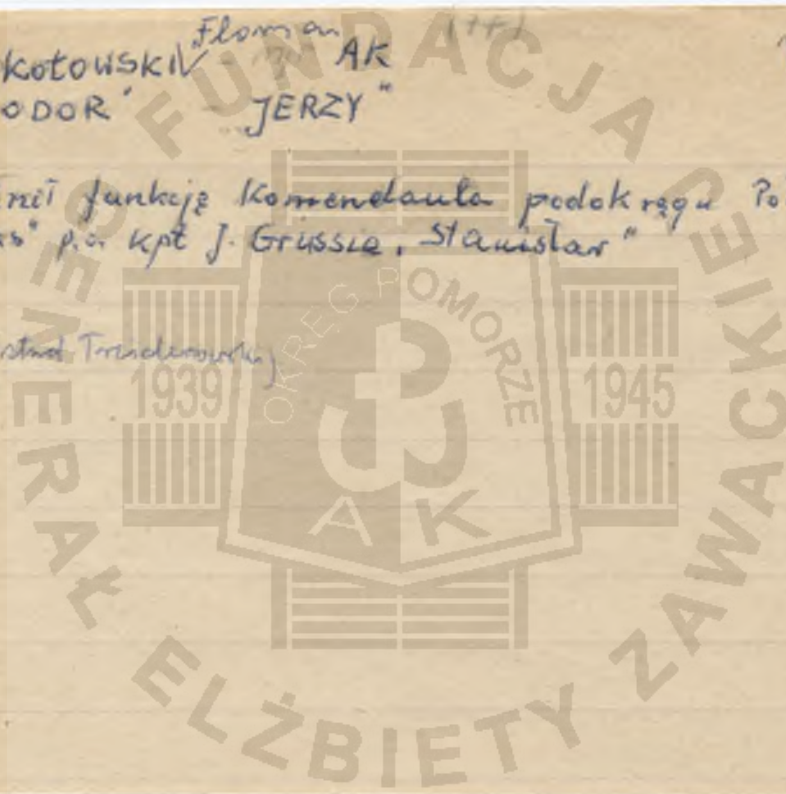 Florian
kotowski AK
ODOR" JERZY"
nił funkcję Komendanta podokręgu Po
p.o. kpt J. Grussie, Stanisław"
FUNDACJA
GENERAŁ ELŻBIETY ZAWACKIEJ
OKRĘG POMORZE
1939 1945
AK